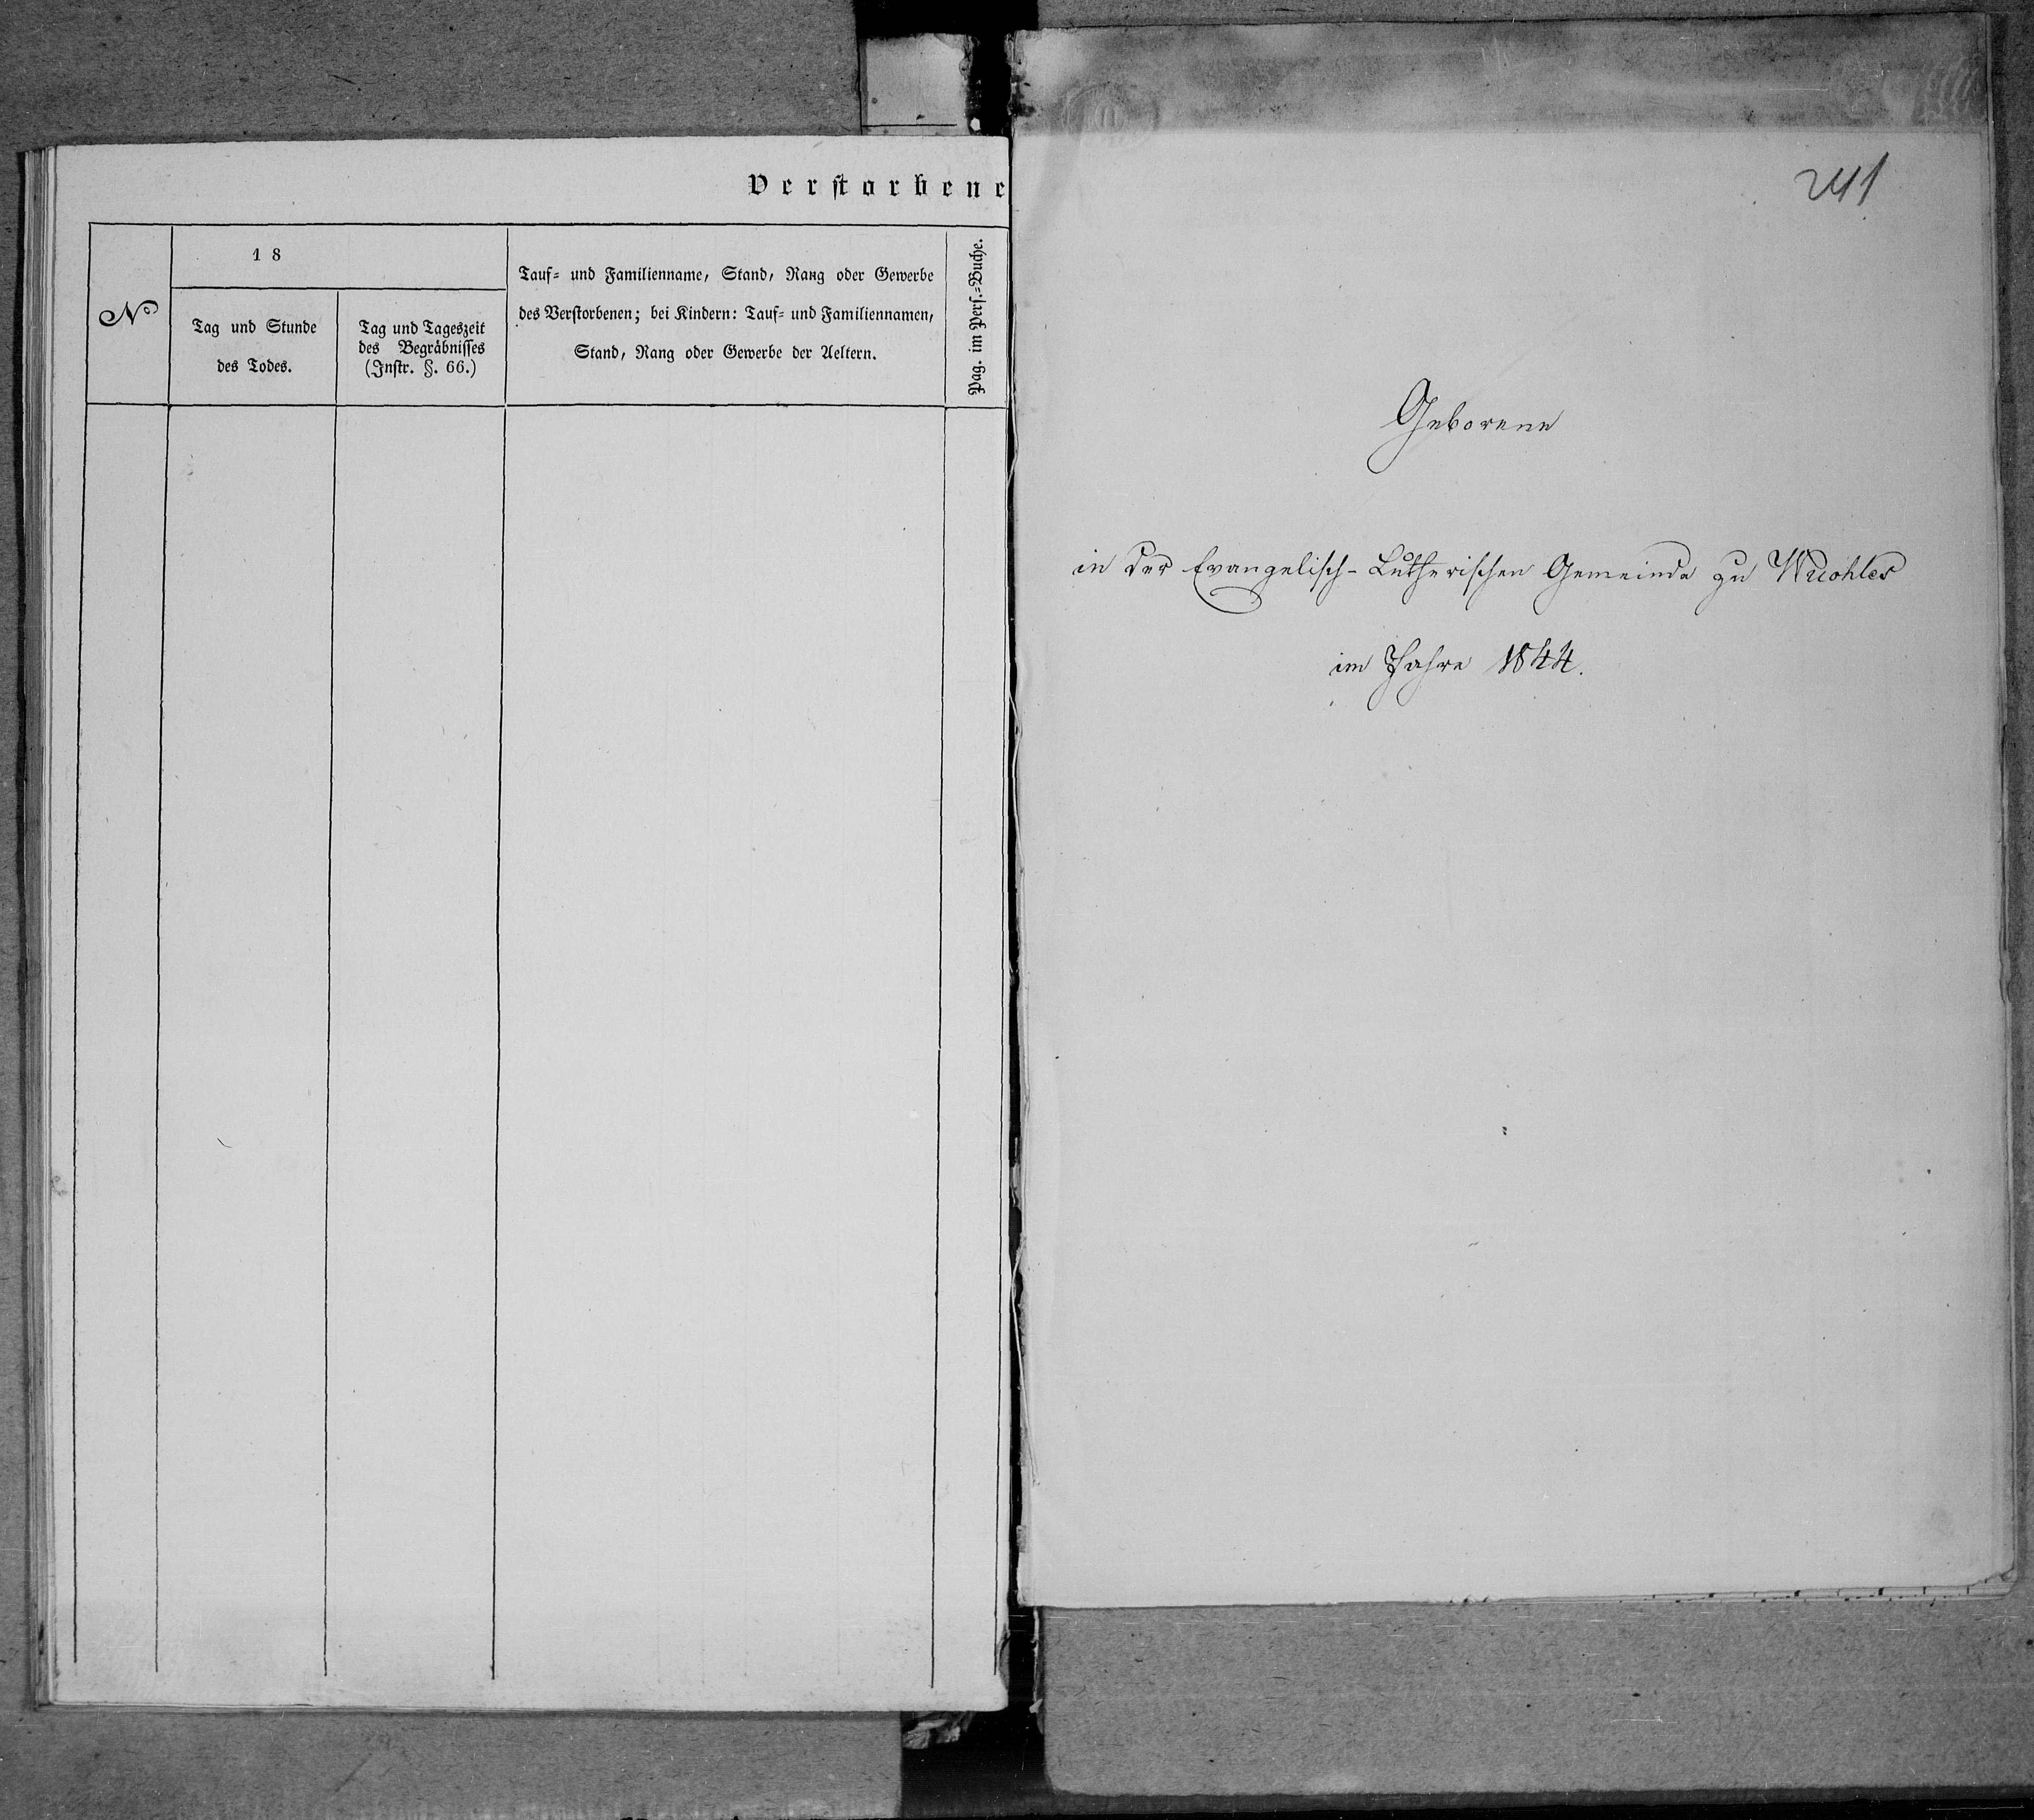 Verstorbene
No
18
Tag und Stunde
des Todes.
Tag und Tageszeit
des Begräbnisses
(Instr. §. 66.)
Tauf- und Familienname, Stand, Rang oder Gewerbe
des Verstorbenen; bei Kindern: Tauf- und Familiennamen,
Stand, Rang oder Gewerbe der Aeltern.
Pag. im Pers.-Buche.
241
Geborene
in der Evangelisch-Lutherischen Gemeinde zu
im Jahre 1844.